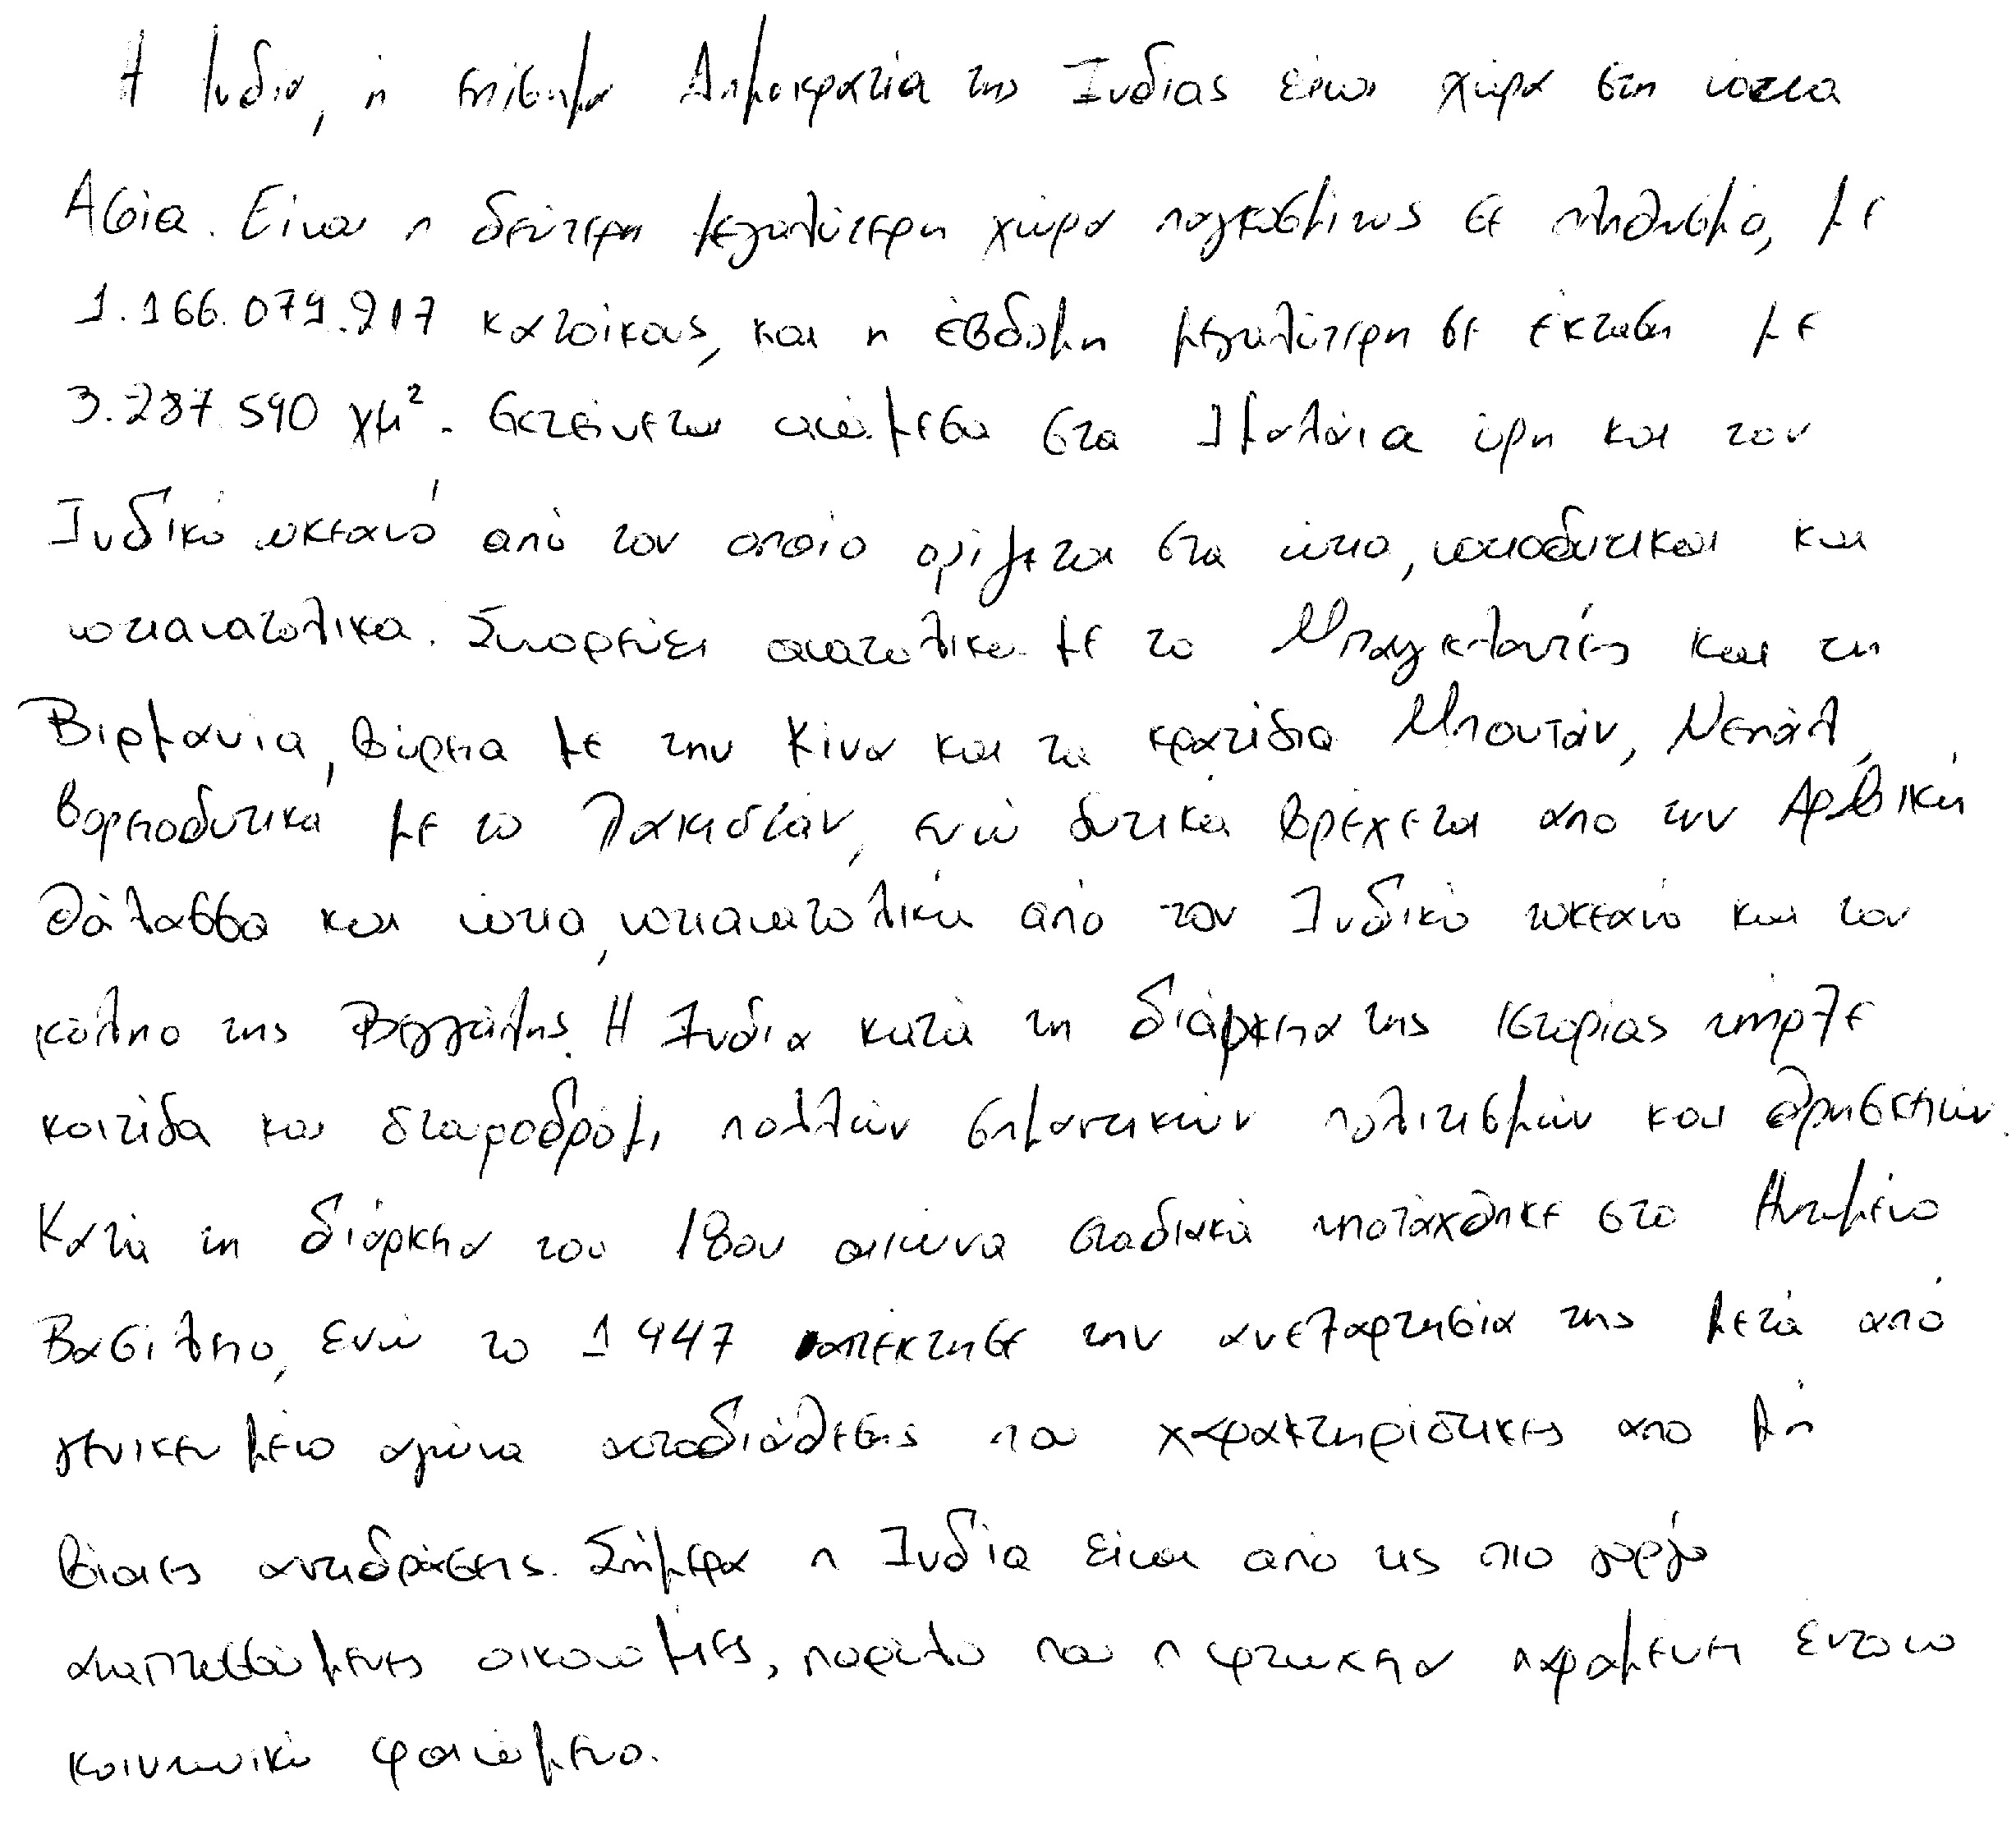 Η Ινδία, ή επίσημα Δημοκρατία της Ινδίας είναι χώρα στη νότια
Ασία. Είναι η δεύτερη μεγαλύτερη χώρα παγκοσμίως σε πληθυσμό, με
1.166.079.217 κατοίκους, και η έβδομη μεγαλύτερη σε έκταση με
3.287.590 χμ². Εκτείνεται ανάμεσα στα Ιμαλάια όρη και τον
Ινδικό ωκεανό από τον οποίο ορίζεται στα νότια, νοτιοδυτικά και
νοτιανατολικά. Συνορεύει ανατολικά με το Μπαγκλαντές και τη
Βιρμανία, βόρεια με την Κίνα και τα κρατίδια Μπουτάν, Νεπάλ,
βορειοδυτικά με το Πακιστάν, ενώ δυτικά βρέχεται από την Αραβική
θάλασσα και νότια, νοτιανατολικά από τον Ινδικό ωκεανό και τον
κόλπο της Βεγγάλης. Η Ινδία κατά τη διάρκεια της ιστορίας υπήρξε
κοιτίδα και σταυροδρόμι πολλών σημαντικών πολιτισμών και θρησκειών.
Κατά τη διάρκεια του 18ου αιώνα σταδιακά υποτάχθηκε στο Ηνωμένο
Βασίλειο, ενώ το 1947 απέκτησε την ανεξαρτησία της μετά από
γενικευμένο αγώνα αυτοδιάθεσης που χαρακτηρίστηκες από μη
βίαιες αντιδράσεις. Σήμερα η Ινδία είναι από τις πιο γοργά
αναπτυσσόμενες οικονομίες, παρόλο που η φτώχεια παραμένει έντονο
κοινωνικό φαινόμενο.